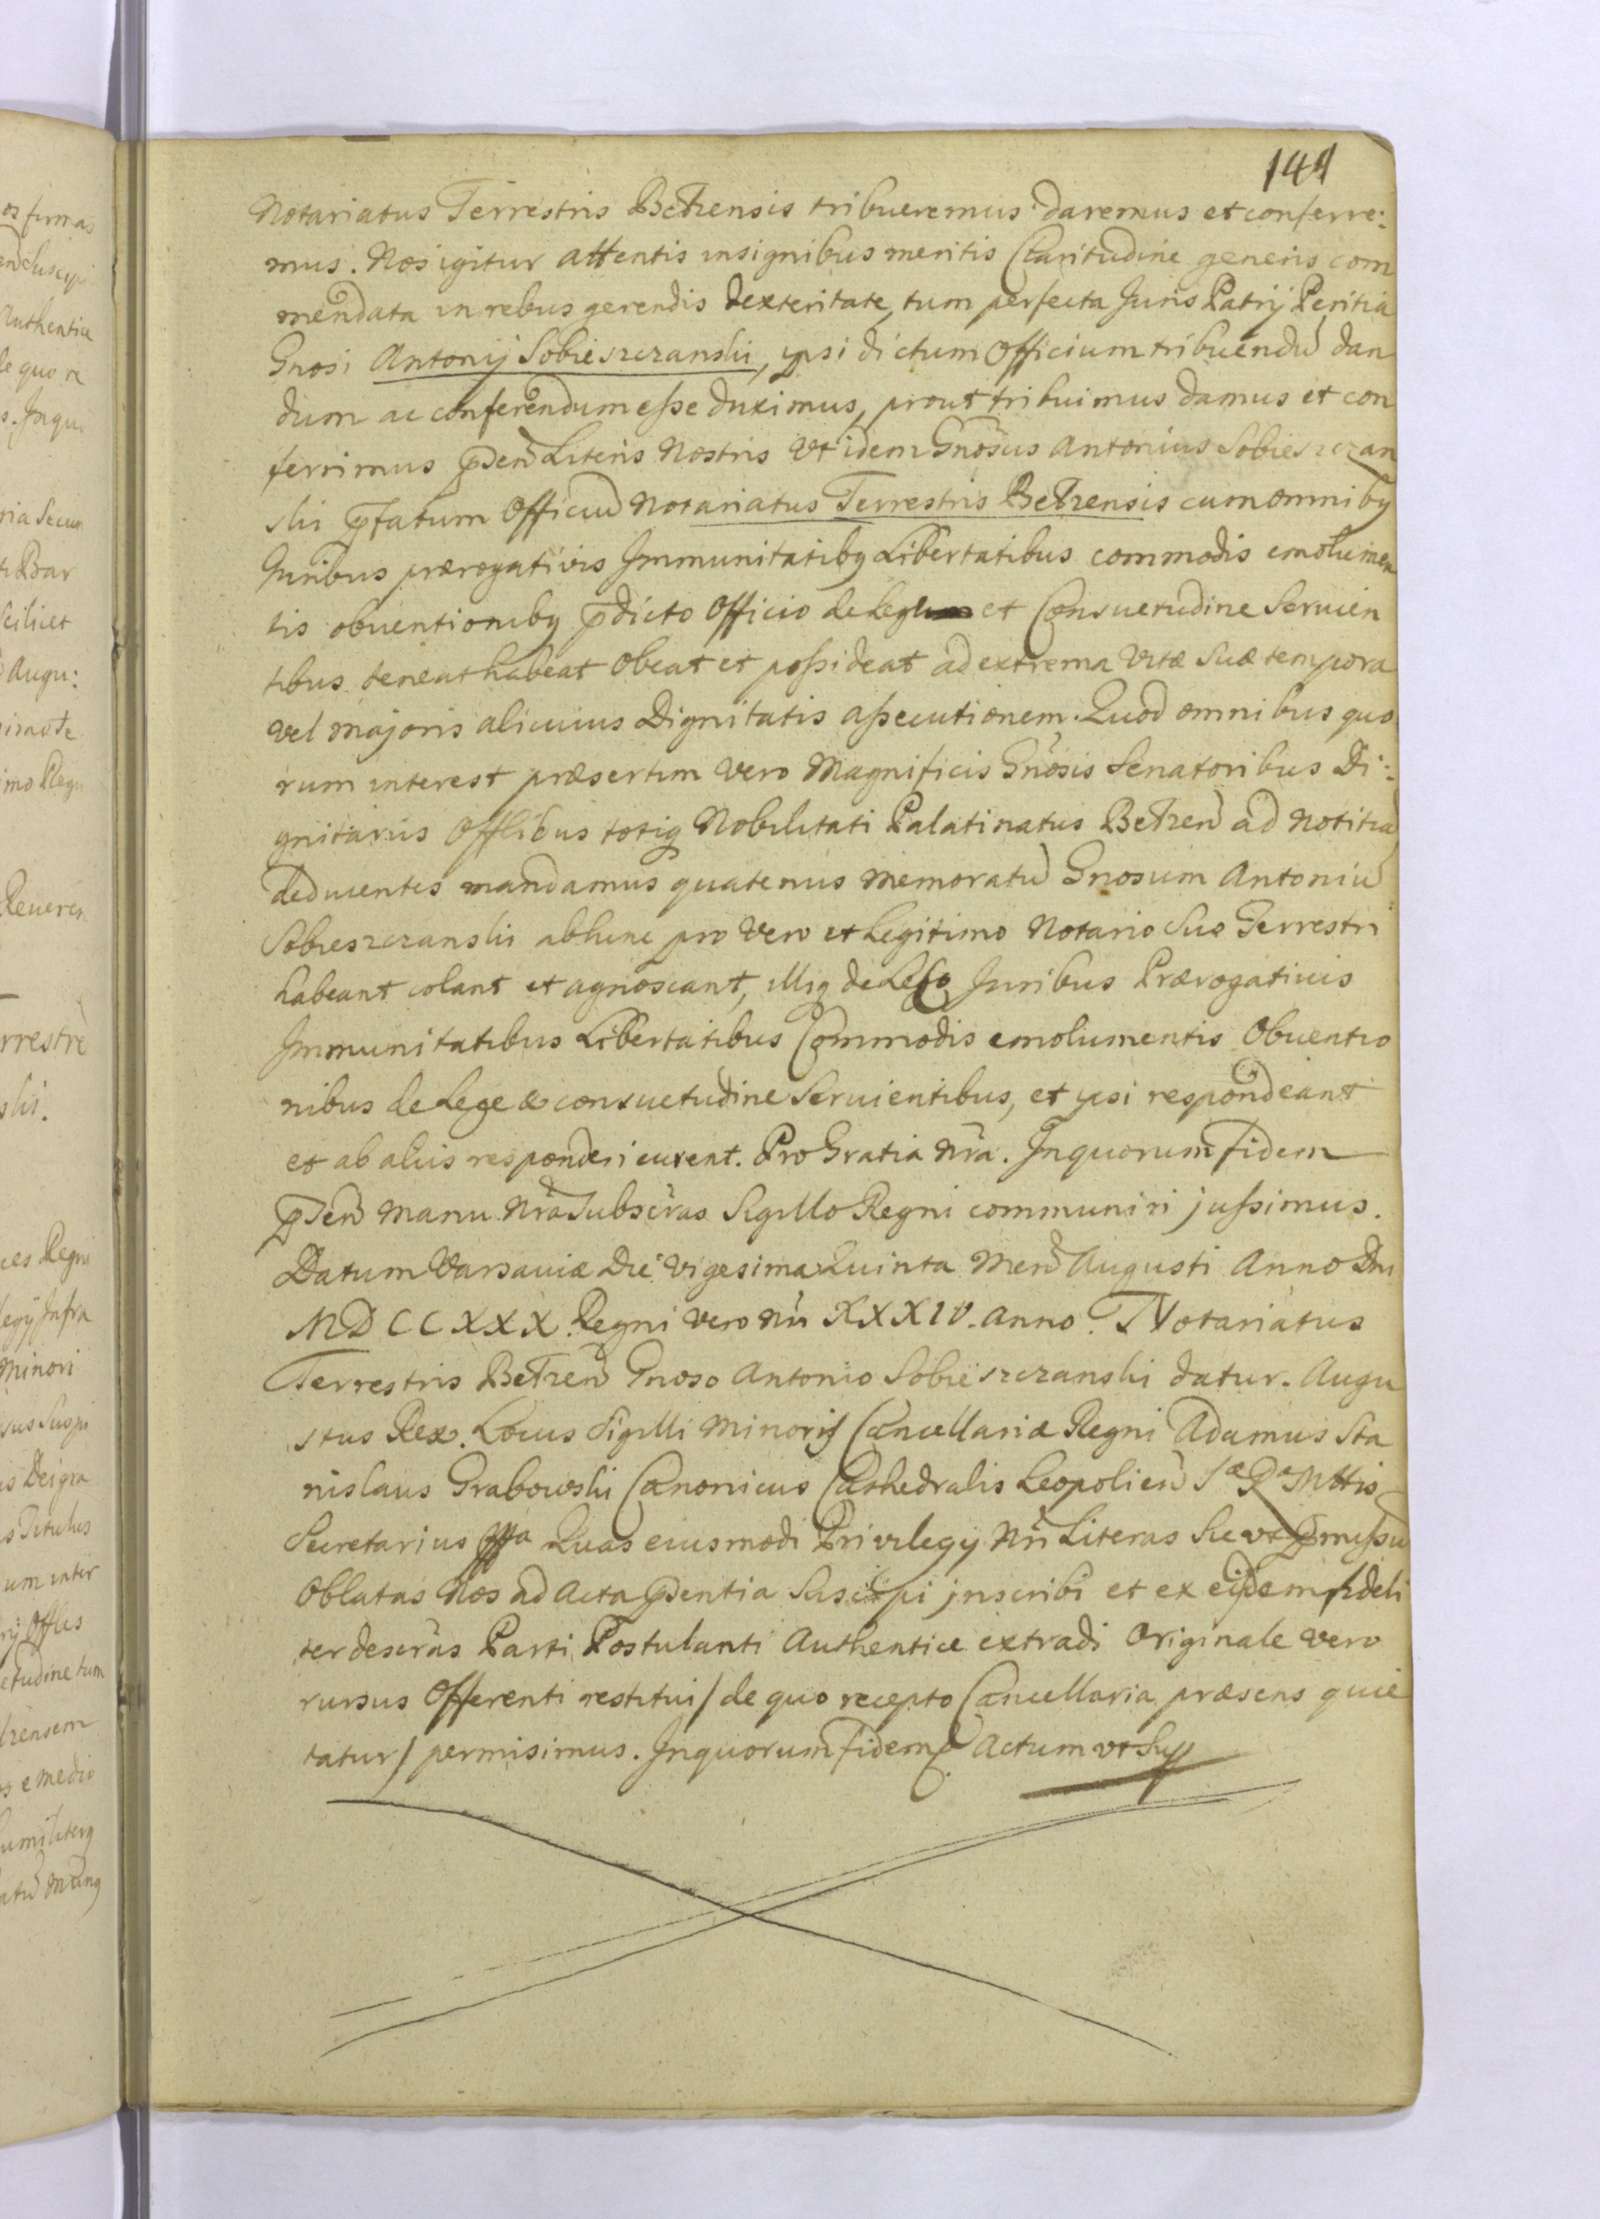 144
Notariatus Terrestris Betzensis tribueremus daremus et conferre:
mus. Nos igitur attentis insignibus meritis Claritudine generis com
mendata in rebus gerendis dexteritate, tum perfecta Juris Patrij Peritia
Gnosi Antonij Sobieszczanski, ipsi dictum Officium tribuendu dan
dum ac conferendum esse duximus, prout tribuimus damus et con
ferrimus pnden Literis Nostris Vt idem Gnosus Antonius Sobieszczan
ski pfatum Officiu Notariatus Terrestris Betzensis cum omnibq
Juribus prærogativis Jmmunitatibq Libertatibus commodis emolumen
tis obventionibq pdicto Officio de Lege et Consvetudine Servien
tibus teneat habeat Obeat et possideat ad extrema Vitæ Suæ tempora
vel majoris alicuius Dignitatis assecutionem. Quod omnibus quo
rum interest præsertim Vero Magnificis Gnosis Senatoribus Di:
gnitariis Offlibus totiq Nobilitati Palatinatus Betzen ad Notitia
deducentes mandamus quatenus memoratu Gnosum Antoniu
Sobieszczanski abhinc pro Vero et Legitimo Notario Suo Terrestri
habeant colant et agnoscant, illiq de Juribus Prærogativis
Jmmunitatibus Libertatibus Commodis emolumentis Obventio
nibus de Lege & consvetudine Servientibus, et ipsi respondeant
et ab aliis responderi curent. Pro Gratia Nra. Jn quorum fidem
pnden Manu Nra Subscras Sigillo Regni communiri jussimus.
Datum Varsaviæ Die Vigesima Quinta Men Augusti Anno Dni
MDCCXXX. Regni Vero Nri XXXIV. Anno. Notariatus
Terrestris Betzen Gnoso Antonio Sobieszczanski datur. Augu
stus Rex. Locus Sigilli Minoris Cancellariæ Regni Adamus Sta
nislaus Grabowski Canonicus Cathedralis Leopolien Sæ Ræ Mttis
Secretarius Quas eiusmodi Privilegij Nri Literas Sic vt pmissu
Oblatas Nos ad Acta pntia Suscipi jnscribi et ex eisdem fideli
ter descras Parti Postulanti Authentice extradi Originale vero
rursus Offerenti restitui / de quo recepto Cancellaria præsens quie
tatur / permisimus. Jn quorum fidem Actum vt Sup